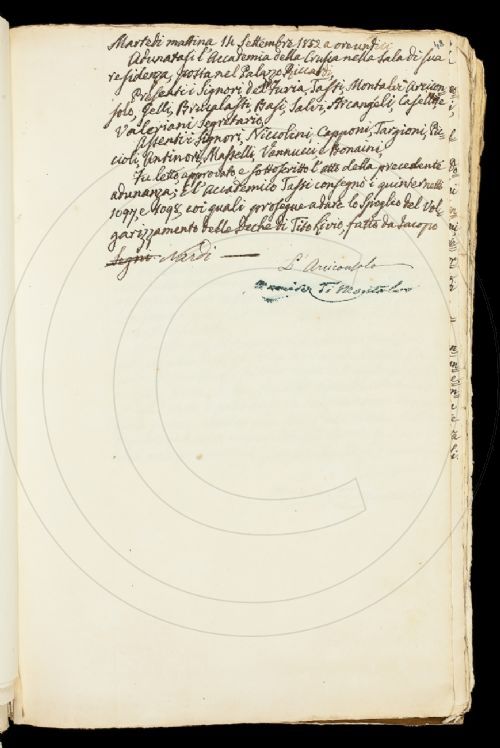 48
Martedi mattina 14 Settembre 1852 a ore undici
Adunatasi l'Accademia della Crusca nella sala di sua
residenza, posta nel Palazzo Riccardi,
Presenti i Signori Del Furia, Tassi, Montalvi Arcicon-
solo, Gelli, Brucalassi, Basi, Salvi, Arcangeli, Casella e
Valeriani Segretario,
Assenti i Signori, Niccolini, Capponi, Targioni, Puc-
cioli, Santinori, Masselli, Vannucci e Bonaini,
Fu letto, approvato, e sottoscritto l'atto della precedente
adunanza; E l'accademico Tassi consegnò i quinternetti
1097, e 1098, coi quali prosegue a dare lo spoglio del Vol-
garizzamento delle Deche di Tito Livio, fatto da Jacopo
Nardi
L'Arciconsolo